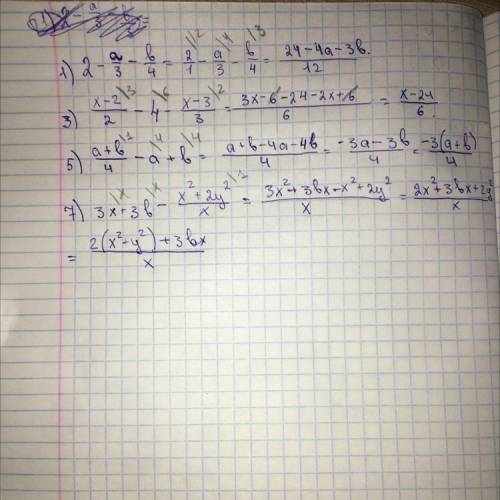 1) 2 - a/3 - b/4 = 2/1 - a/3 - b/4 = (24-4a-3b)/12.
3) (x-2)/2 - 4 - (x-3)/3 = (3x-6-24-2x+6)/6 = (x-24)/6.
5) (a+b)/4 - a + b = (a+b-4a-4b)/4 = (-3a-3b)/4 = -3(a+b)/4
7) 3x+3b - (x²+2y²)/x = (3x²+3bx-x²+2y²)/x = (2x²+3bx+2y²)/x
= (2(x²-y²)+3bx)/x